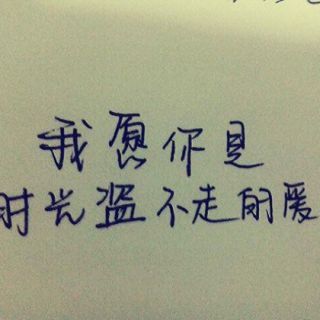 我愿你是
时光盗不走的爱